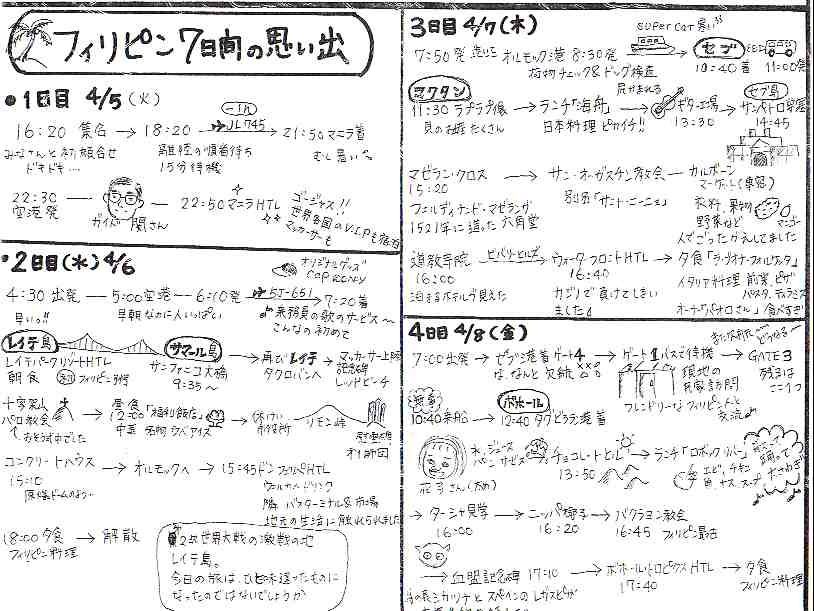 フィリピン7日間の思い出
●1日目 4/5(火)
16:20 集合 → 18:20 → JL745 → 21:50マニラ着
みなさんと初顔合せ
ドキドキ…
離陸の順番待ち
15分待機
むし暑い
22:30
空港発
ガイド 関さん
22:50マニラHTL
ゴージャス!!
世界各国のV.I.Pも宿泊
マッカーサーも
●2日目(水)4/6
オリジナルグッズ
4:30 出発 — 5:00空港 — 6:10発 5J-651 → 7:20着
早いっ!!
早朝なのに人いっぱい
乗務員の歌のサービス〜
こんなの初めて
レイテ島
サマール島
レイテパークリゾートHTL
朝食
サンファニコ大橋
9:35〜
→ 再びレイテ
タクロバンへ
→ マッカーサー上陸
記念碑
レッドビーチ
十字架山
パロ教会
おそう式中でした
昼食
12:00「福利飯店」
中華 名物 ウベアイス
→ 休けい
市役所
リモン峠
コンクリートハウス
15:10
原爆ドームのよう…
→ オルモックへ → 15:45ドン フェリペHTL
ウェルカムドリンク
隣 バスターミナル&市場
地元の生活に触れられました
18:00 夕食 → 解散
フィリピン料理
第2次世界大戦の激戦の地
レイテ島。
今日の旅は、ひと味違ったものに
なったのではないでしょうか
3日目 4/7(木)
SUPER CAT 寒い
7:50発 オルモック港 8:30発 → セブ
荷物チェック&ドッグ検査
10:40着 11:00発
マクタン
11:30 ラプラプ像 → ランチ「海舟」
貝のお店 たくさん
日本料理 ピカイチ!!
ギター工場
13:30
セブ島
サンペドロ要塞
14:45
マゼラン・クロス → サン・オーガスチン教会 → カルボーン
15:20
別名「サント・ニーニョ」
マーケット(車窓)
フェルディナンド・マゼランが
1521年に造った 六角堂
衣料、果物
野菜など
マンゴー
人でごったがえしてました
道教寺院 ビバリーヒルズ → ウォーターフロントHTL → 夕食「ラ・タオナ・フォルヴェッタ」
16:00
16:40
泊まるホテルが見えた
カジノで負けてしまい
ました
イタリア料理 前菜、ピザ
パスタ、ティラミス
食べすぎ
4日目 4/8(金)
7:00出発 → セブ港着 ゲート4 → ゲート1 バスで待機 → GATE3
な、なんと 欠航
現地の
民家訪問
フレンドリーな フィリピン人と
交流♪
10:40乗船 → ボホール 12:40 タグビララン港着
花子さん
水、ジュース
パン サービス
チョコレートヒル
13:50
→ ランチ「ロボックリバー」
エビ、チキン
魚 ナス スープ
踊って
大さわぎ
→ ターシャ見学 → ニッパ椰子 → バクラヨン教会
16:00
16:20
16:45 フィリピン最古
→ 血盟記念碑 17:10 → ボホールトロピクスHTL → 夕食
17:40
フィリピン料理